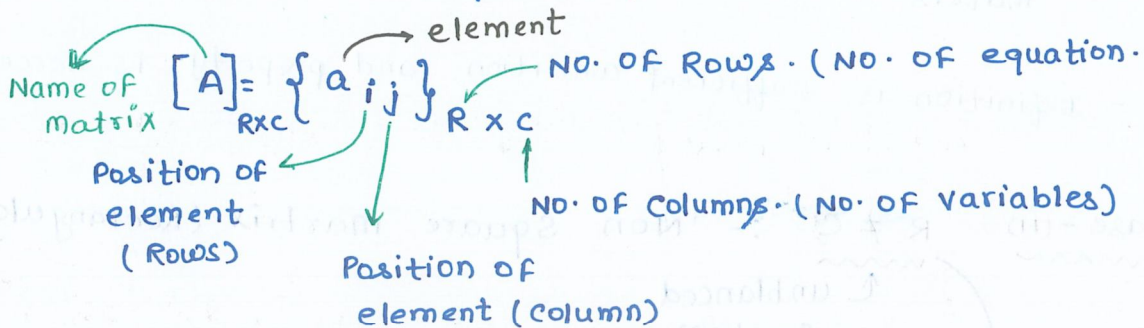 element
Name of matrix
[A]RxC = {a i j} R x C
No. of Rows. (No. of equation.
Position of element (Rows)
No. of Columns. (No. of variables)
Position of element (column)